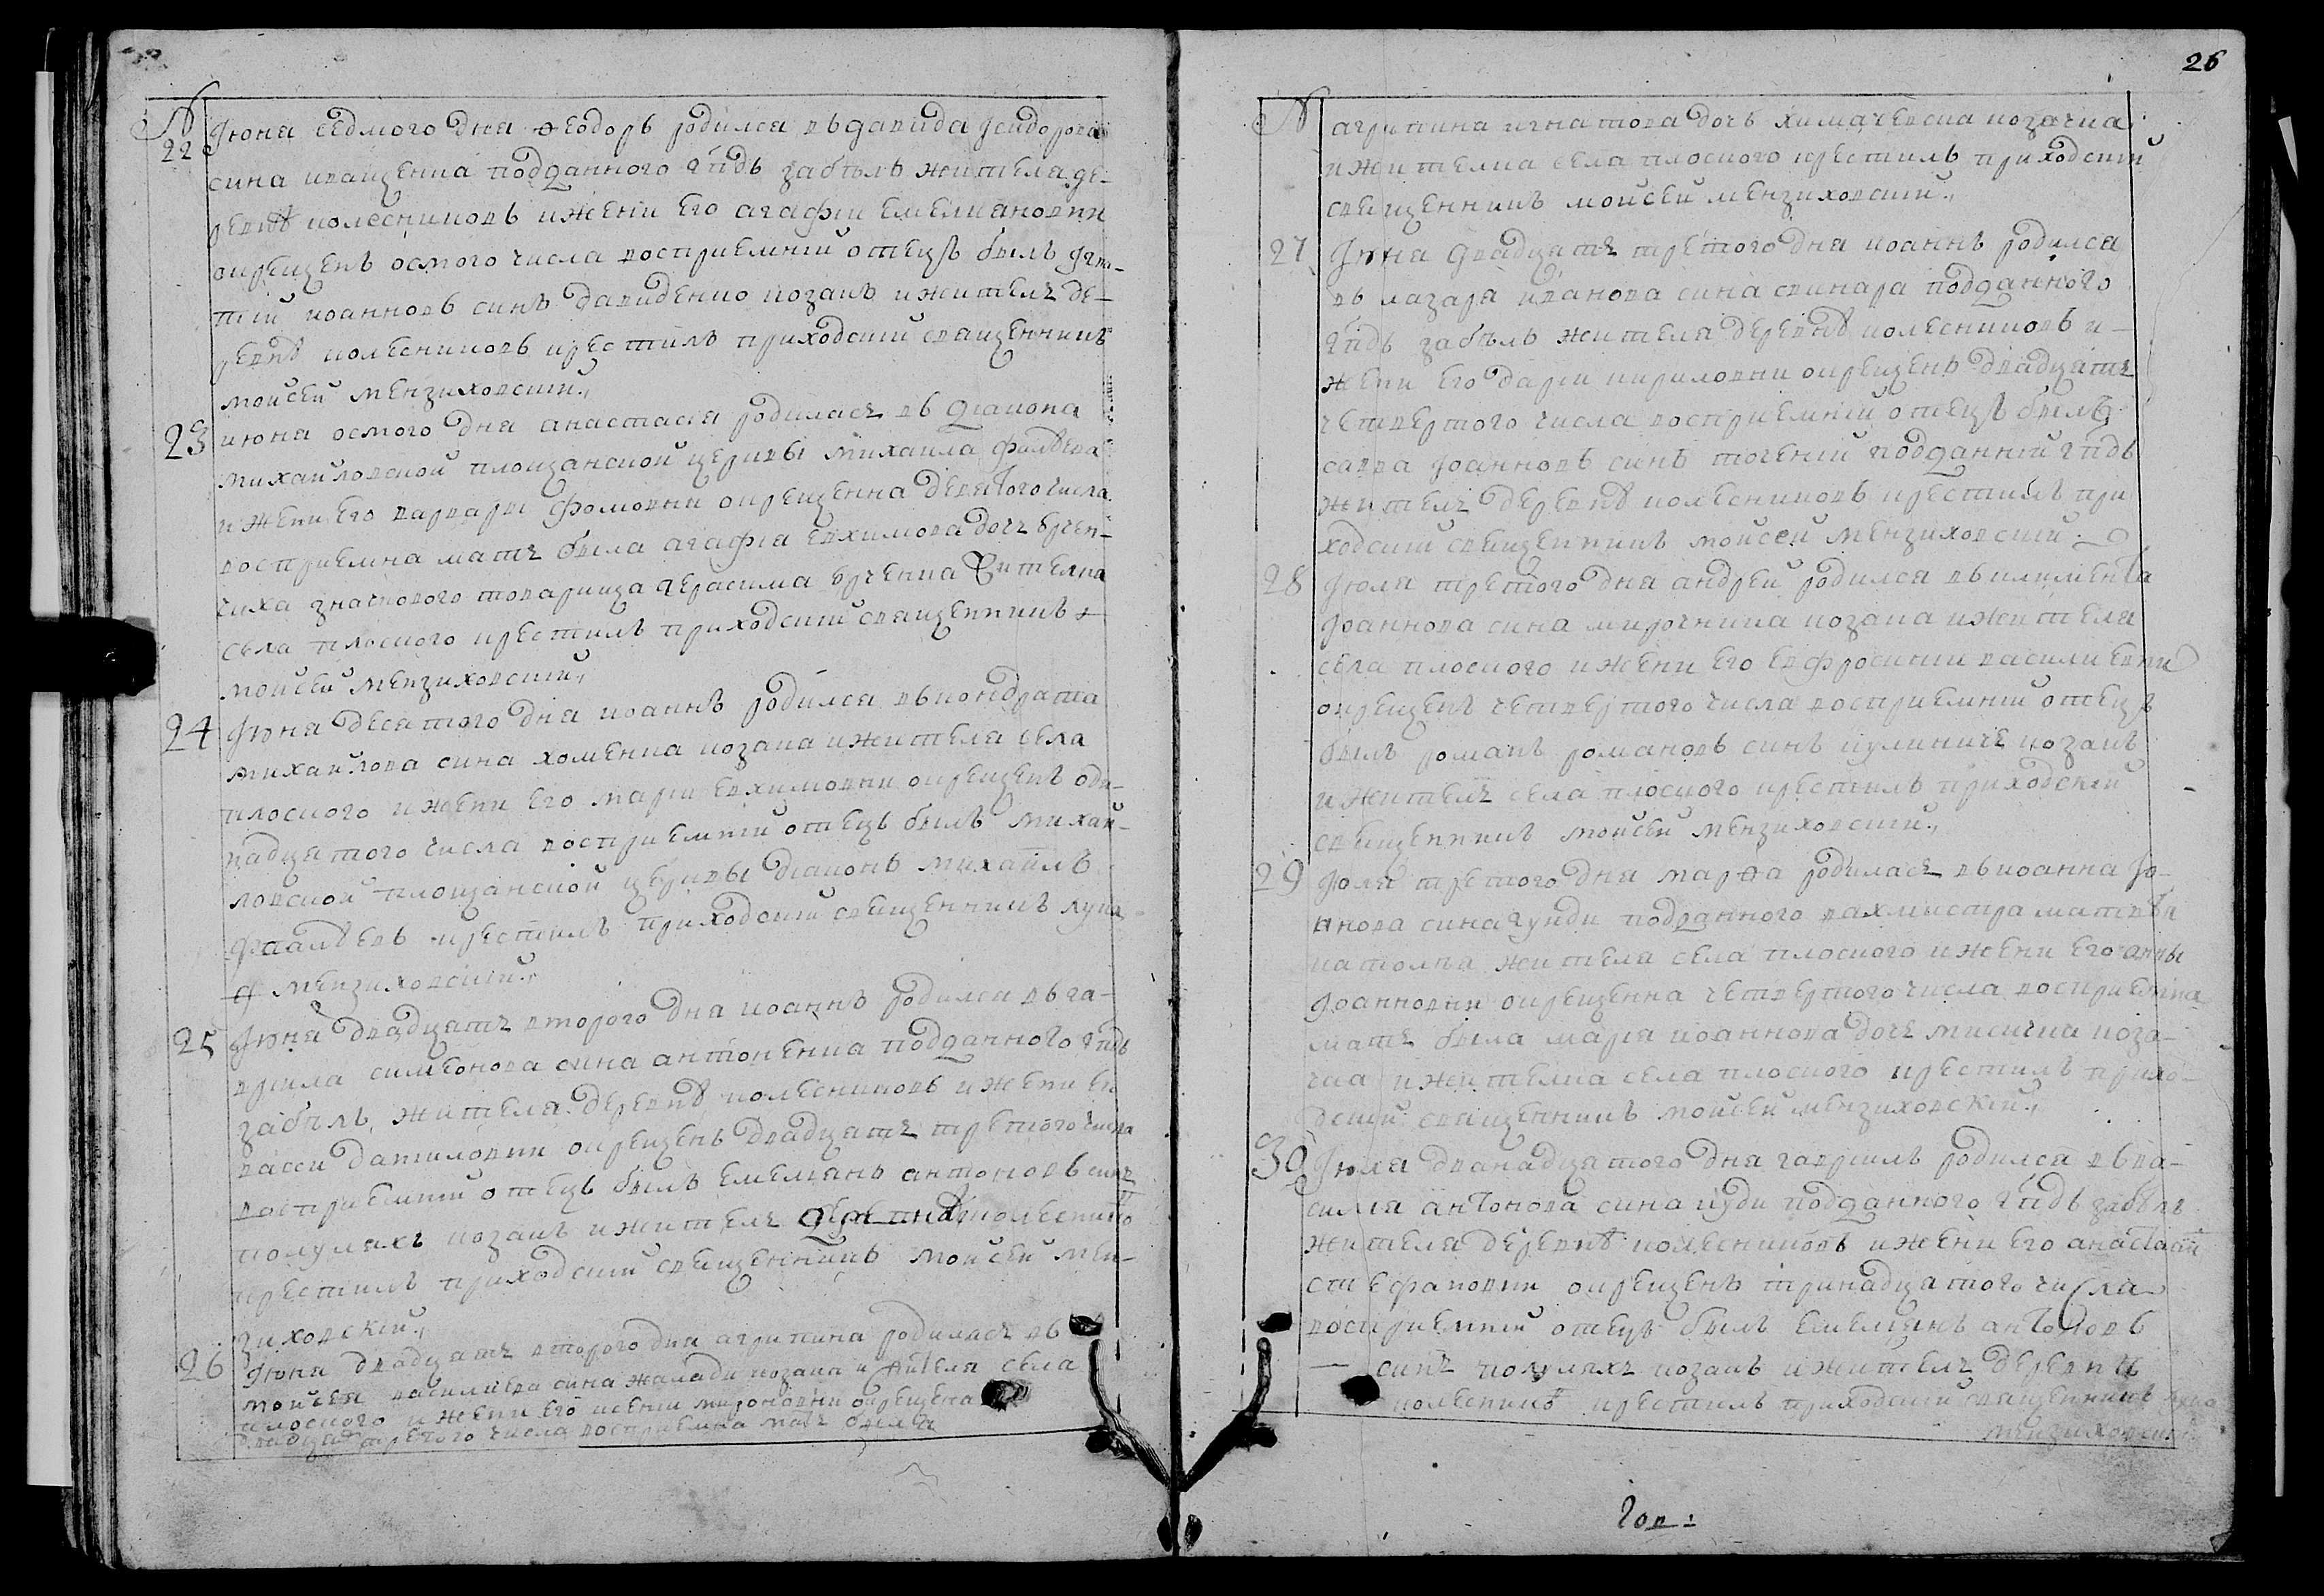 26
№
22 Июня седмого дня Ѳеодоръ родился въ давида Исидорова
сина иващенка подданного гпдъ забѣлъ жителя де-
ревнѣ колесниковъ и жени его агафіи емелиановни
окрещенъ осмого числа восприемній отецъ былъ Игна-
тій иоанновъ синъ давиденко козакъ и жителъ де-
ревнѣ колесниковъ крестилъ приходскій священникъ
мойсей мензиховскій.
23 июня осмого дня анастасія родилась въ діакона
михайловской площанской церквы михаила
и жени его варвары фомовни окрещенна девятого числа
восприемна мать была агафія евхимова дочь
чиха значкового товарища герасима жителка
села плоского крестилъ приходскій священникъ
мойсей мензиховскій
24 Июня десятого дня иоаннъ родился въ кондрата
михайлова сина хоменка козака и жителя села
плоского и жени его маріи евхимовни окрещенъ оди-
надцятого числа восприемній отецъ былъ михай-
ловской площанской церквы діаконъ михаилъ
крестилъ приходскій священникъ лука
мензиховскій.
25 Июня двадцять второго дня иоаннъ родился въ га-
вріила симеонова сина антоненка подданного гпдъ
забѣлъ, жителя деревнѣ колесниковъ и жени ег
васси даниловни окрещенъ двадцять третого числа
восприемній отецъ былъ емелиянъ антоновъ синъ
полуляхъ козакъ и жителъ деревнѣ колеснико
крестилъ приходскій священникъ мойсей мен-
зиховскій.
26 Июня двадцять второго дня агрипина родилась въ
мойсея василиева сина жалади козака и жителя села
плоского и жени его ксеніи мироновни окрещена
двадцять третого числа восприемна мать была
№ агрипина игнатова дочь химичевска козачка
и жителка села плоского крестилъ приходскій
священникъ мойсей мензиховскій.
27 Июня двадцять третого дня иоаннъ родился
въ лазаря иванова сина свинара подданного
гпдъ забѣлъ жителя деревнѣ колесниковъ и
жени его даріи кириловни окрещенъ двадцять
четвертого числа восприемній отецъ былъ
савва Иоанновъ синъ точеній подданній гпдъ
жителъ деревнѣ колесниковъ крестилъ при
ходскій священникъ мойсей мензиховскій.
28 Июля третого дня андрей родился въ климента
Иоаннова сина мирочника козака и жителя
села плоского и жени его евфросиніи василиевни
окрещенъ четвертого числа восприемній отецъ
былъ романъ романовъ синъ кулиничъ козакъ
и жителъ села плоского крестилъ приходскій
священникъ мойсей мензиховскій.
29 Июля третого дня марѳа родилась въ иоанна Ио-
анова сина гунди подданного вахмистра матвѣя
жителя села плоского и жени его анны
Иоанновни окрещенна четвертого числа восприемна
мать была марія иоаннова дочь козa-
чка и жителка села плоского крестилъ прихо-
дскій священникъ мойсей мензиховскій.
30 Июля дванадцятого дня гавріилъ родился въ ва-
силия антонова сина подданного гпдъ забѣлъ
жителя деревнѣ колесниковъ и жени его анастасіи
стефановни окрещенъ тринадцятого числа
восприемній отецъ былъ емелиянъ антоновъ
синъ полуляхъ козакъ и жителъ деревнѣ
колесникъ крестилъ приходскій священникъ лука
мензиховскій